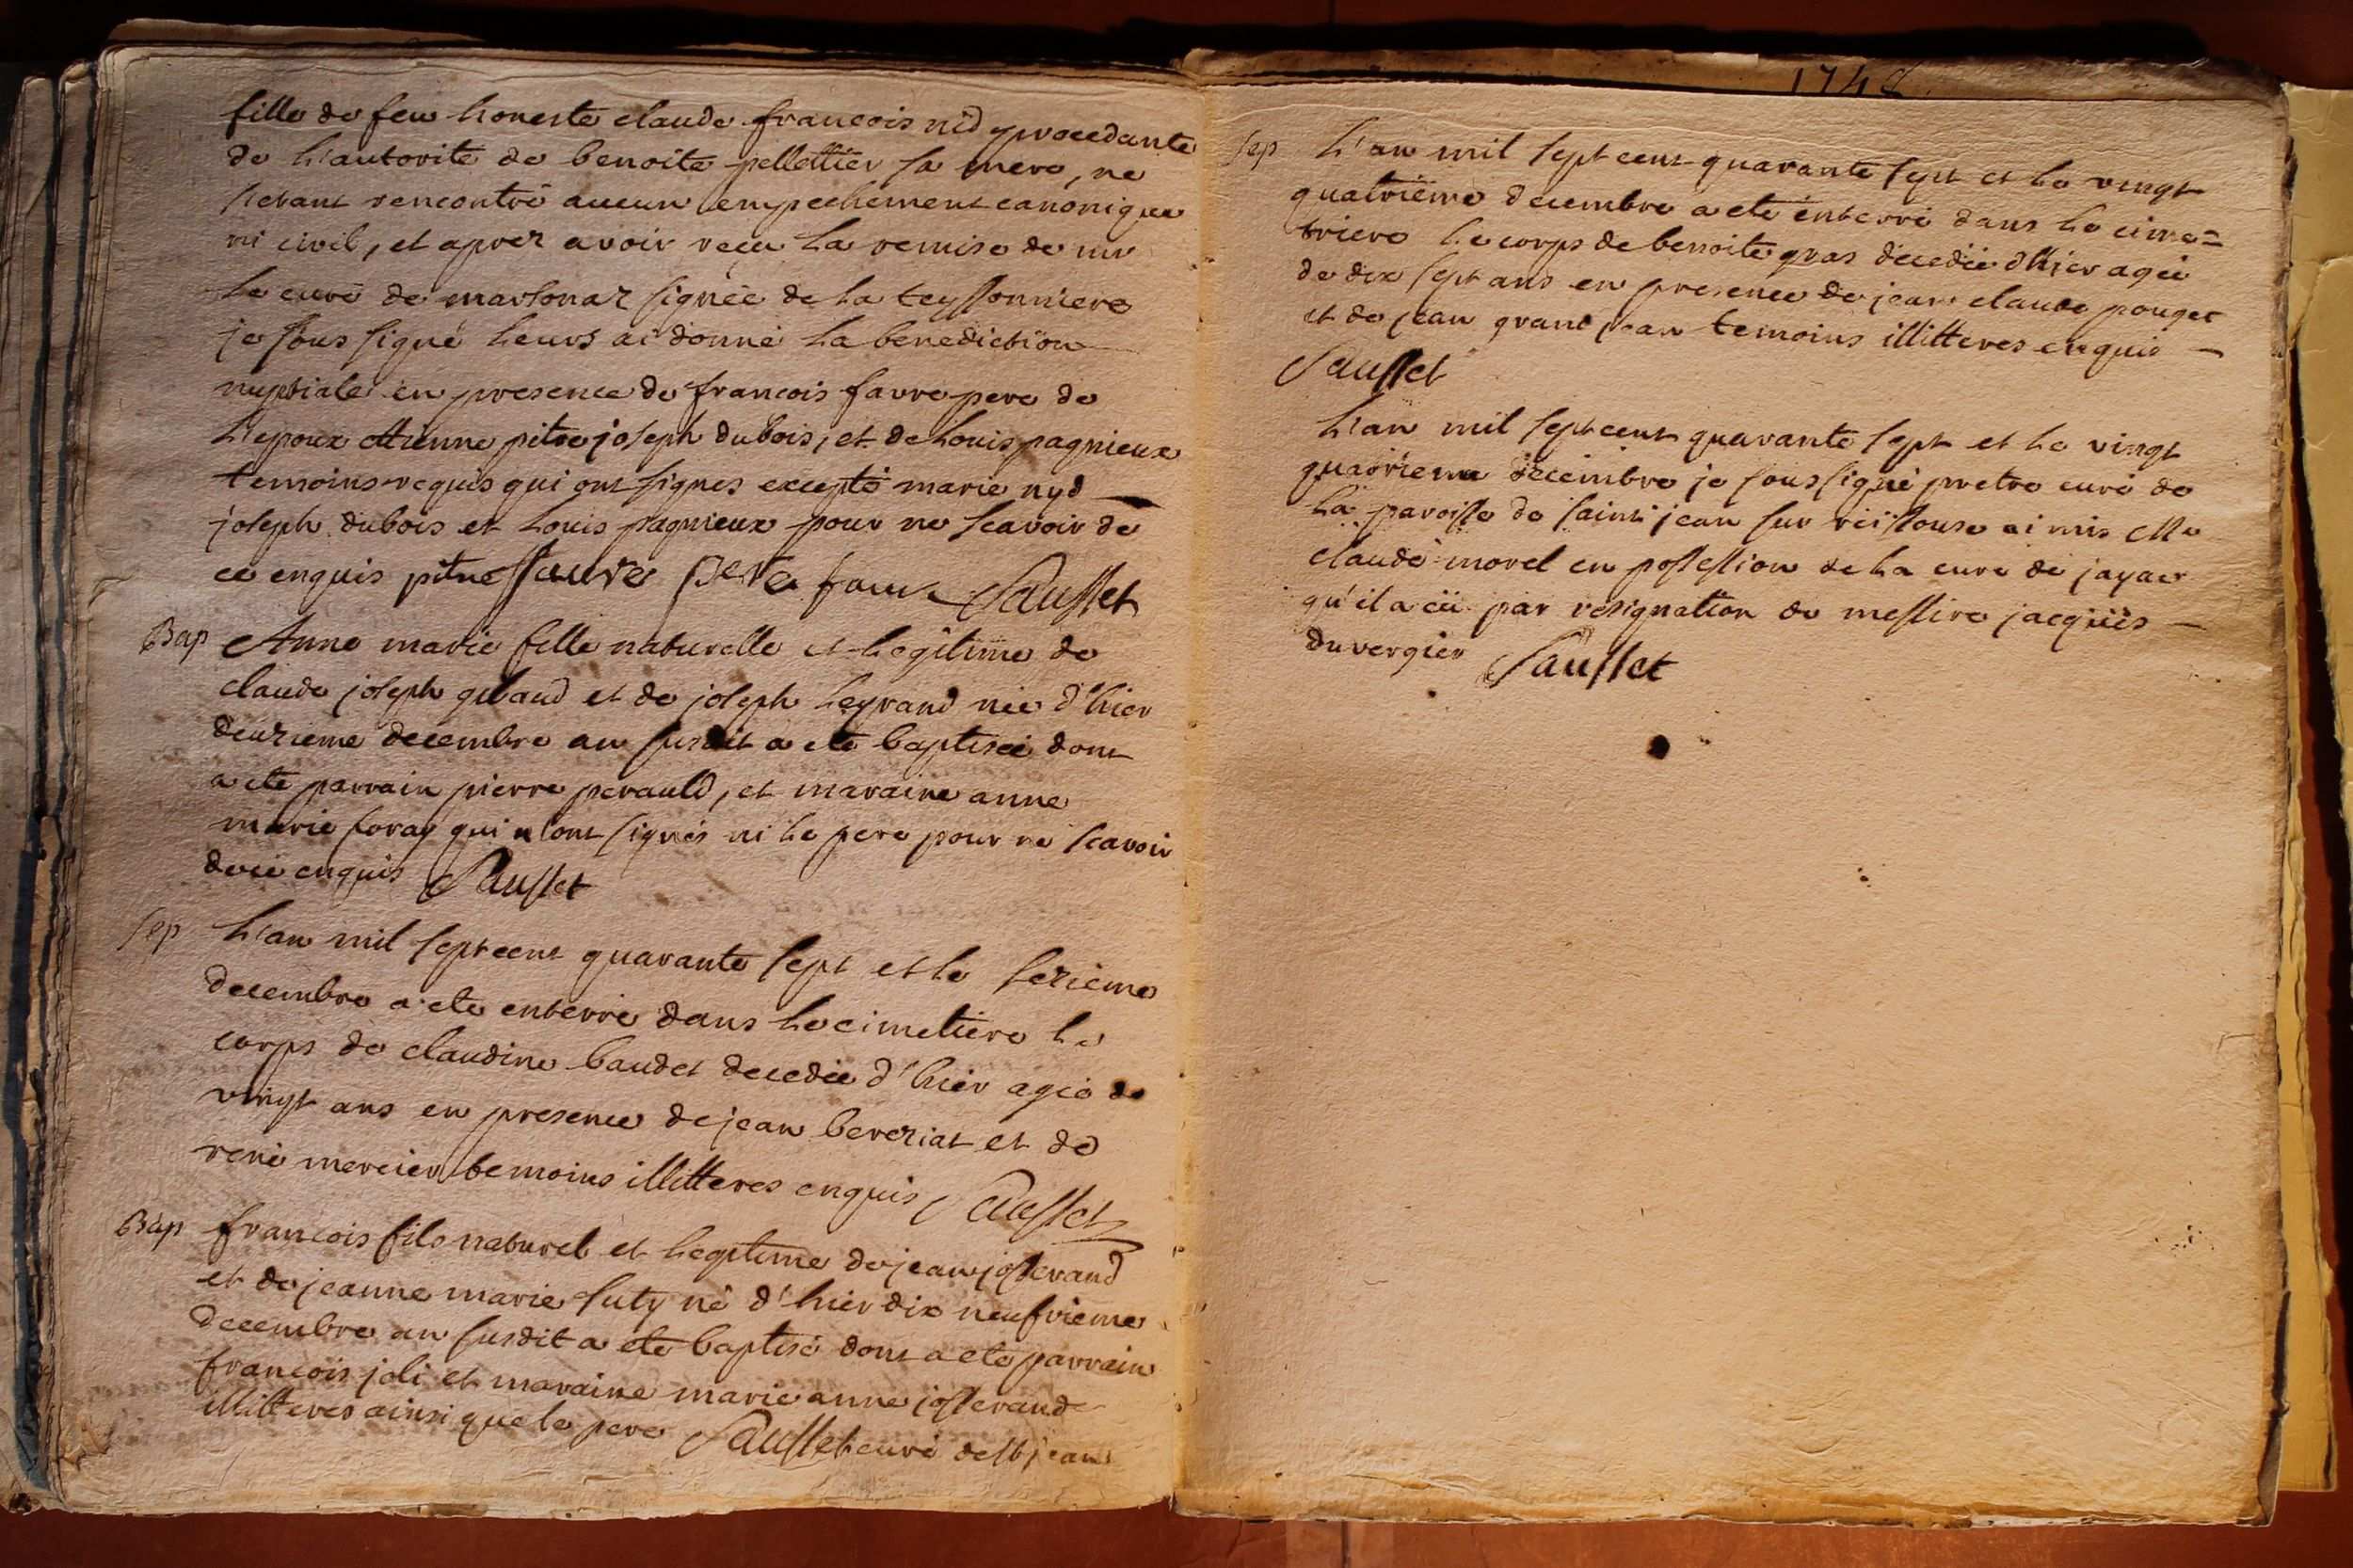 fille de feu honeste claude francois nid procedante
de l'autorité de benoite pellettier sa mere, ne
setant rencontré aucun empechement canonique
ni civil, et aprez avoir reçu la remise de mr
le curé de marsonaz signée de la teyssonniere
je sous signé leurs ai donné la benediction
nuptiale en presence de francois favre pere de
l'epoux etienne pitre joseph dubois, et de louis pagnieux
temoins requis qui ont signes excepté marie nyd
joseph dubois et louis pagnieux pour ne scavoir de
ce enquis pitre favre Sausset
Bap Anne marie fille naturelle et legitime de
claude joseph gibaud et de joseph legrand née d'hier
deuxieme decembre an susdit a eté baptisée dont
a eté parrain pierre perauld, et maraine anne
marie foray qui n'ont signés ni le pere pour ne scavoir
dece enquis Sausset
sep L'an mil sept cent quarante sept et le sezieme
decembre a eté enterré dans le cimetiere le
corps de claudine baudet decedée d'hier agée de
vingt ans en presence de jean bereziat et de
rené mercier temoins illitteres enquis Sausset
Bap francois fils naturel et legitime de jean josserand
et de jeanne marie suty né d'hier dix neufvieme
decembre an susdit a eté baptisé dont a eté parrain
francois joli et maraine marie anne josserand
illitteres ainsi que le pere Sausset curé de st jean
1748
sep L'an mil sept cent quarante sept et le vingt
quatrieme decembre a eté enterré dans le cime=
triere le corps de benoite gras decedée d'hier agée
de dix sept ans en presence de jean claude pouget
et de jean grand jean temoins illitteres enquis
Sausset
L'an mil sept cent quarante sept et le vingt
quatrieme decembre je sous signé pretre curé de
la paroisse de saint jean sur reissouse ai mis Mre
claude morel en possession de la cure de jayac
qu'il a eü par résignation de messire jacques
duvergier Sausset